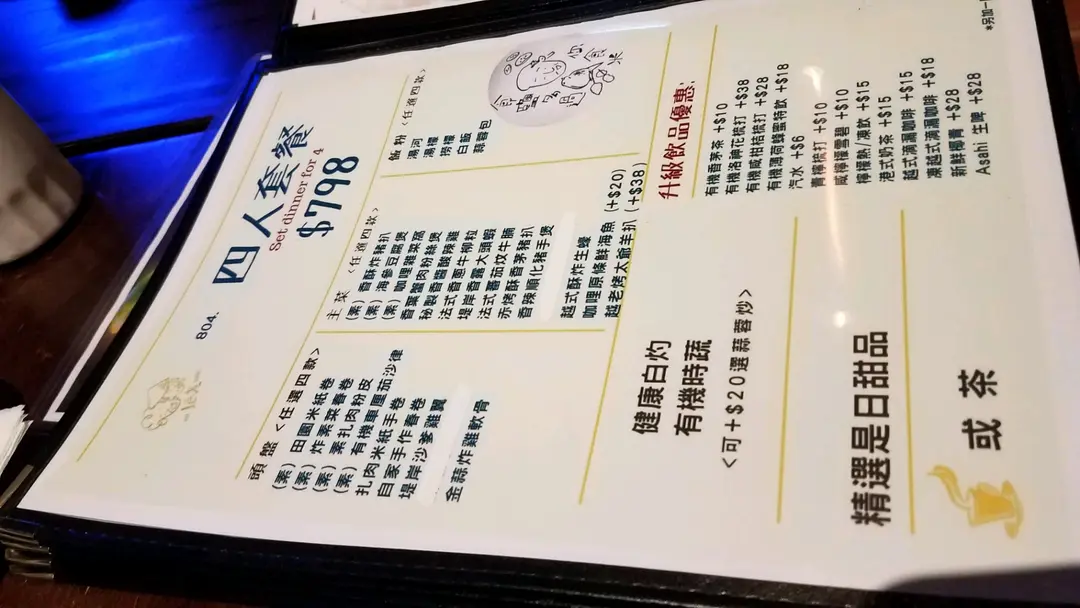 804.
四人套餐
Set dinner for 4
$798
頭盤 <任選四款>
(素) 田園米紙卷
(素) 炸素菜春卷
(素) 素扎肉粉皮
(素) 有機車厘茄沙律
扎肉米紙手卷
自家手作春卷
堤岸沙爹雞翼
金蒜炸雞軟骨
主菜 <任選四款>
(素) 香酥炸豬扒
(素) 海參豆腐煲
(素) 咖喱雜菜窩
香葉蟹肉粉絲煲
秘製香醬酸辣雞
法式香蔥牛柳粒
堤岸香露大頭蝦
法式蕃茄炆牛腩
赤烤酥香茅豬扒
香辣順化豬手煲
越式酥炸生蠔 (+$20)
咖喱原條鮮海魚 (+$38)
越老烤太爺羊扒
飯粉 <任選四款>
湯河
湯檬
撈檬
白飯
蒜蓉包
健康白灼
有機時蔬
<可+$20選蒜蓉炒>
升級飲品優惠:
有機香茅茶 +$10
有機洛神花梳打 +$38
有機咸柑桔梳打 +$28
有機薄荷蜂蜜特飲 +$18
汽水 +$6
青檸梳打 +$10
咸檸檬雪碧 +$10
檸檬熱/凍飲 +$15
港式奶茶 +$15
越式滴漏咖啡 +$15
凍越式滴漏咖啡 +$18
新鮮椰青 +$28
Asahi 生啤 +$28
精選是日甜品
或 茶
*另加一